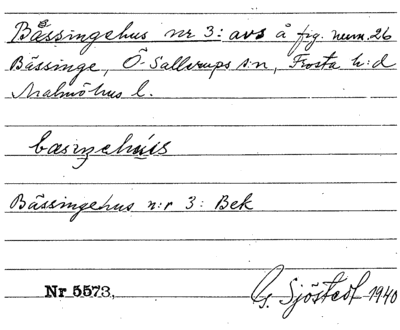 Bässingehus nr 3: avs å fig. num. 26
Bässinge, Ö. Sallerups s:n, Frosta h:d
Malmöhus l.
bæsiŋehúis
Bässingehus n:r 3: Bek
Nr 5573, G. Sjöstedt 1940